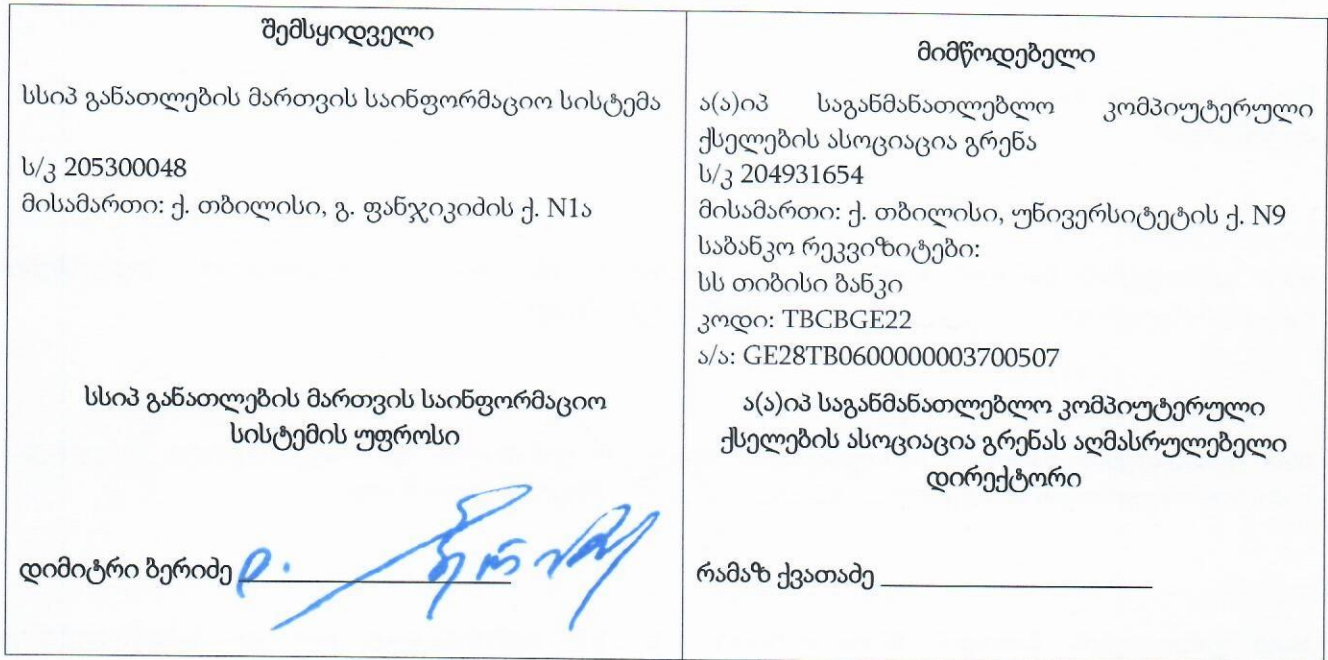 შემსყიდველი
სსიპ განათლების მართვის საინფორმაციო სისტემა
ს/კ 205300048
მისამართი: ქ. თბილისი, გ. ფანჯიკიძის ქ. N1ა
სსიპ განათლების მართვის საინფორმაციო
სისტემის უფროსი
დიმიტრი ბერიძე
მიმწოდებელი
ა(ა)იპ საგანმანათლებლო კომპიუტერული
ქსელების ასოციაცია გრენა
ს/კ 204931654
მისამართი: ქ. თბილისი, უნივერსიტეტის ქ. N9
საბანკო რეკვიზიტები:
სს თიბისი ბანკი
კოდი: TBCBGE22
ა/ა: GE28TB0600000003700507
ა(ა)იპ საგანმანათლებლო კომპიუტერული
ქსელების ასოციაცია გრენას აღმასრულებელი
დირექტორი
რამაზ ქვათაძე